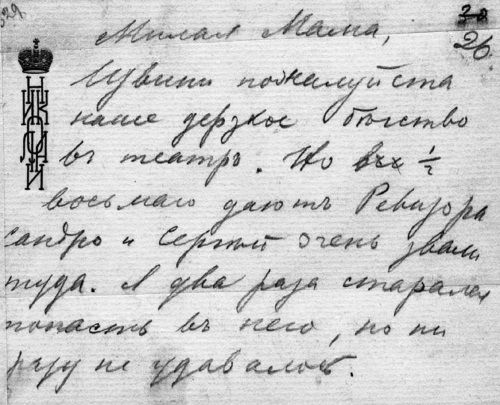 329.
32
26
Милая Мама,
Извини пожалуйста
наше дерзкое бѣгство
въ театръ. Но въ ½
восьмаго даютъ Ревизора
Сандро и Сергѣй очень звали
туда. Я два раза старался
попасть въ него, но ни
разу не удавалось.